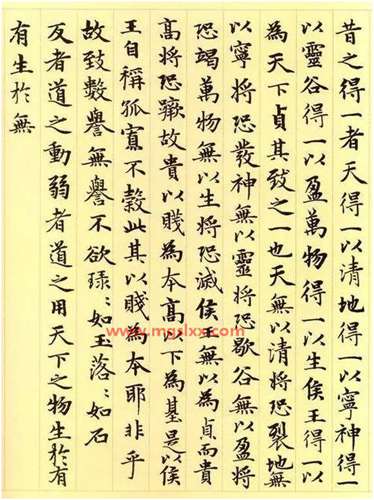 昔之得一者天得一以清地得一以寧神得一
以靈谷得一以盈萬物得一以生侯王得一以
為天下貞其致之一也天無以清將恐裂地無
以寧將恐發神無以靈將恐歇谷無以盈將
恐竭萬物無以生將恐滅侯王無以為貞而貴
高將恐蹶故貴以賤為本高以下為基是以侯
王自稱孤寡不穀此其以賤為本耶非乎
故致數譽無譽不欲琭〻如玉落〻如石
反者道之動弱者道之用天下之物生於有
有生於無
www.mgslxx.com